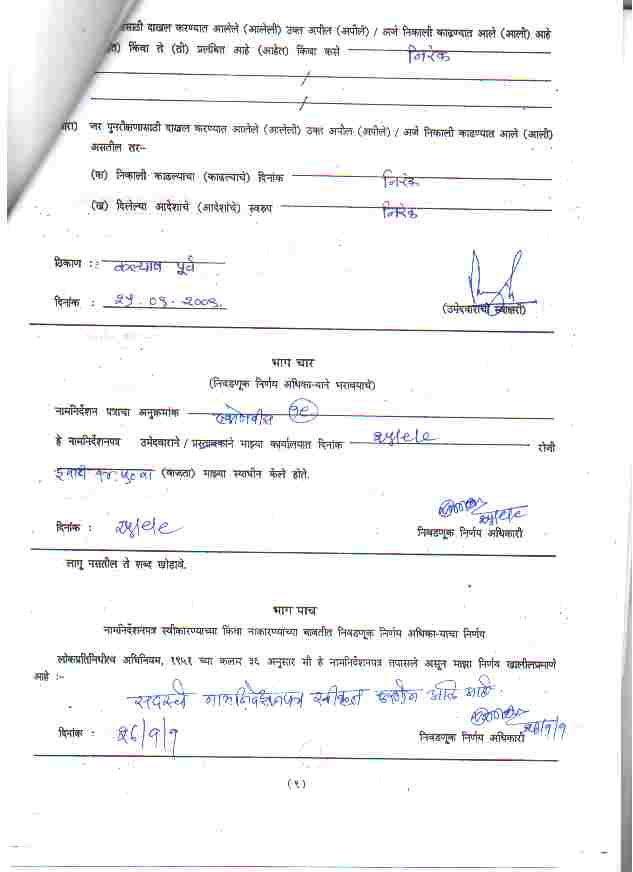 साठी दाखल करण्यात आलेले (आलेली) उक्त अपील (अपीले) / अर्ज निकाली काढण्यात आले (आली) आहे
किंवा ते (तो) प्रलंबित आहे (आहेत) किंवा कसे निरंक
जर पुनरीक्षणासाठी दाखल करण्यात आलेले (आलेली) उक्त अपील (अपीले) / अर्ज निकाली काढण्यात आले (आली)
असतील तर:-
(क) निकाली काढल्याचा (काढल्याचे) दिनांक निरंक
(ख) दिलेल्या आदेशाचे (आदेशांचे) स्वरुप निरंक
ठिकाण :- कल्याण पूर्व
दिनांक : २५.०९.२००९.
(उमेदवाराची स्वाक्षरी)
भाग चार
(निवडणूक निर्णय अधिका-याने भरावयाचे)
नामनिर्देशन पत्राचा अनुक्रमांक एकोणवीस १९
हे नामनिर्देशनपत्र उमेदवाराने / प्रस्तावकाने माझ्या कार्यालयात दिनांक २५/९/०९ रोजी
(वाजता) माझ्या स्वाधीन केले होते.
दिनांक : २५/९/०९
निवडणूक निर्णय अधिकारी
लागू नसतील ते शब्द खोडावे.
भाग पाच
नामनिर्देशनपत्र स्वीकारण्याच्या किंवा नाकारण्यांच्या बाबतीत निवडणूक निर्णय अधिका-याचा निर्णय
लोकप्रतिनिधीत्व अधिनियम, १९५१ च्या कलम ३६ अनुसार मी हे नामनिर्देशनपत्र तपासले असून माझा निर्णय खालीलप्रमाणे
आहे :-
सदरचे नामनिर्देशनपत्र स्वीकृत करणेत येत आहे.
दिनांक : २६/९/९
निवडणूक निर्णय अधिकारी
(९)